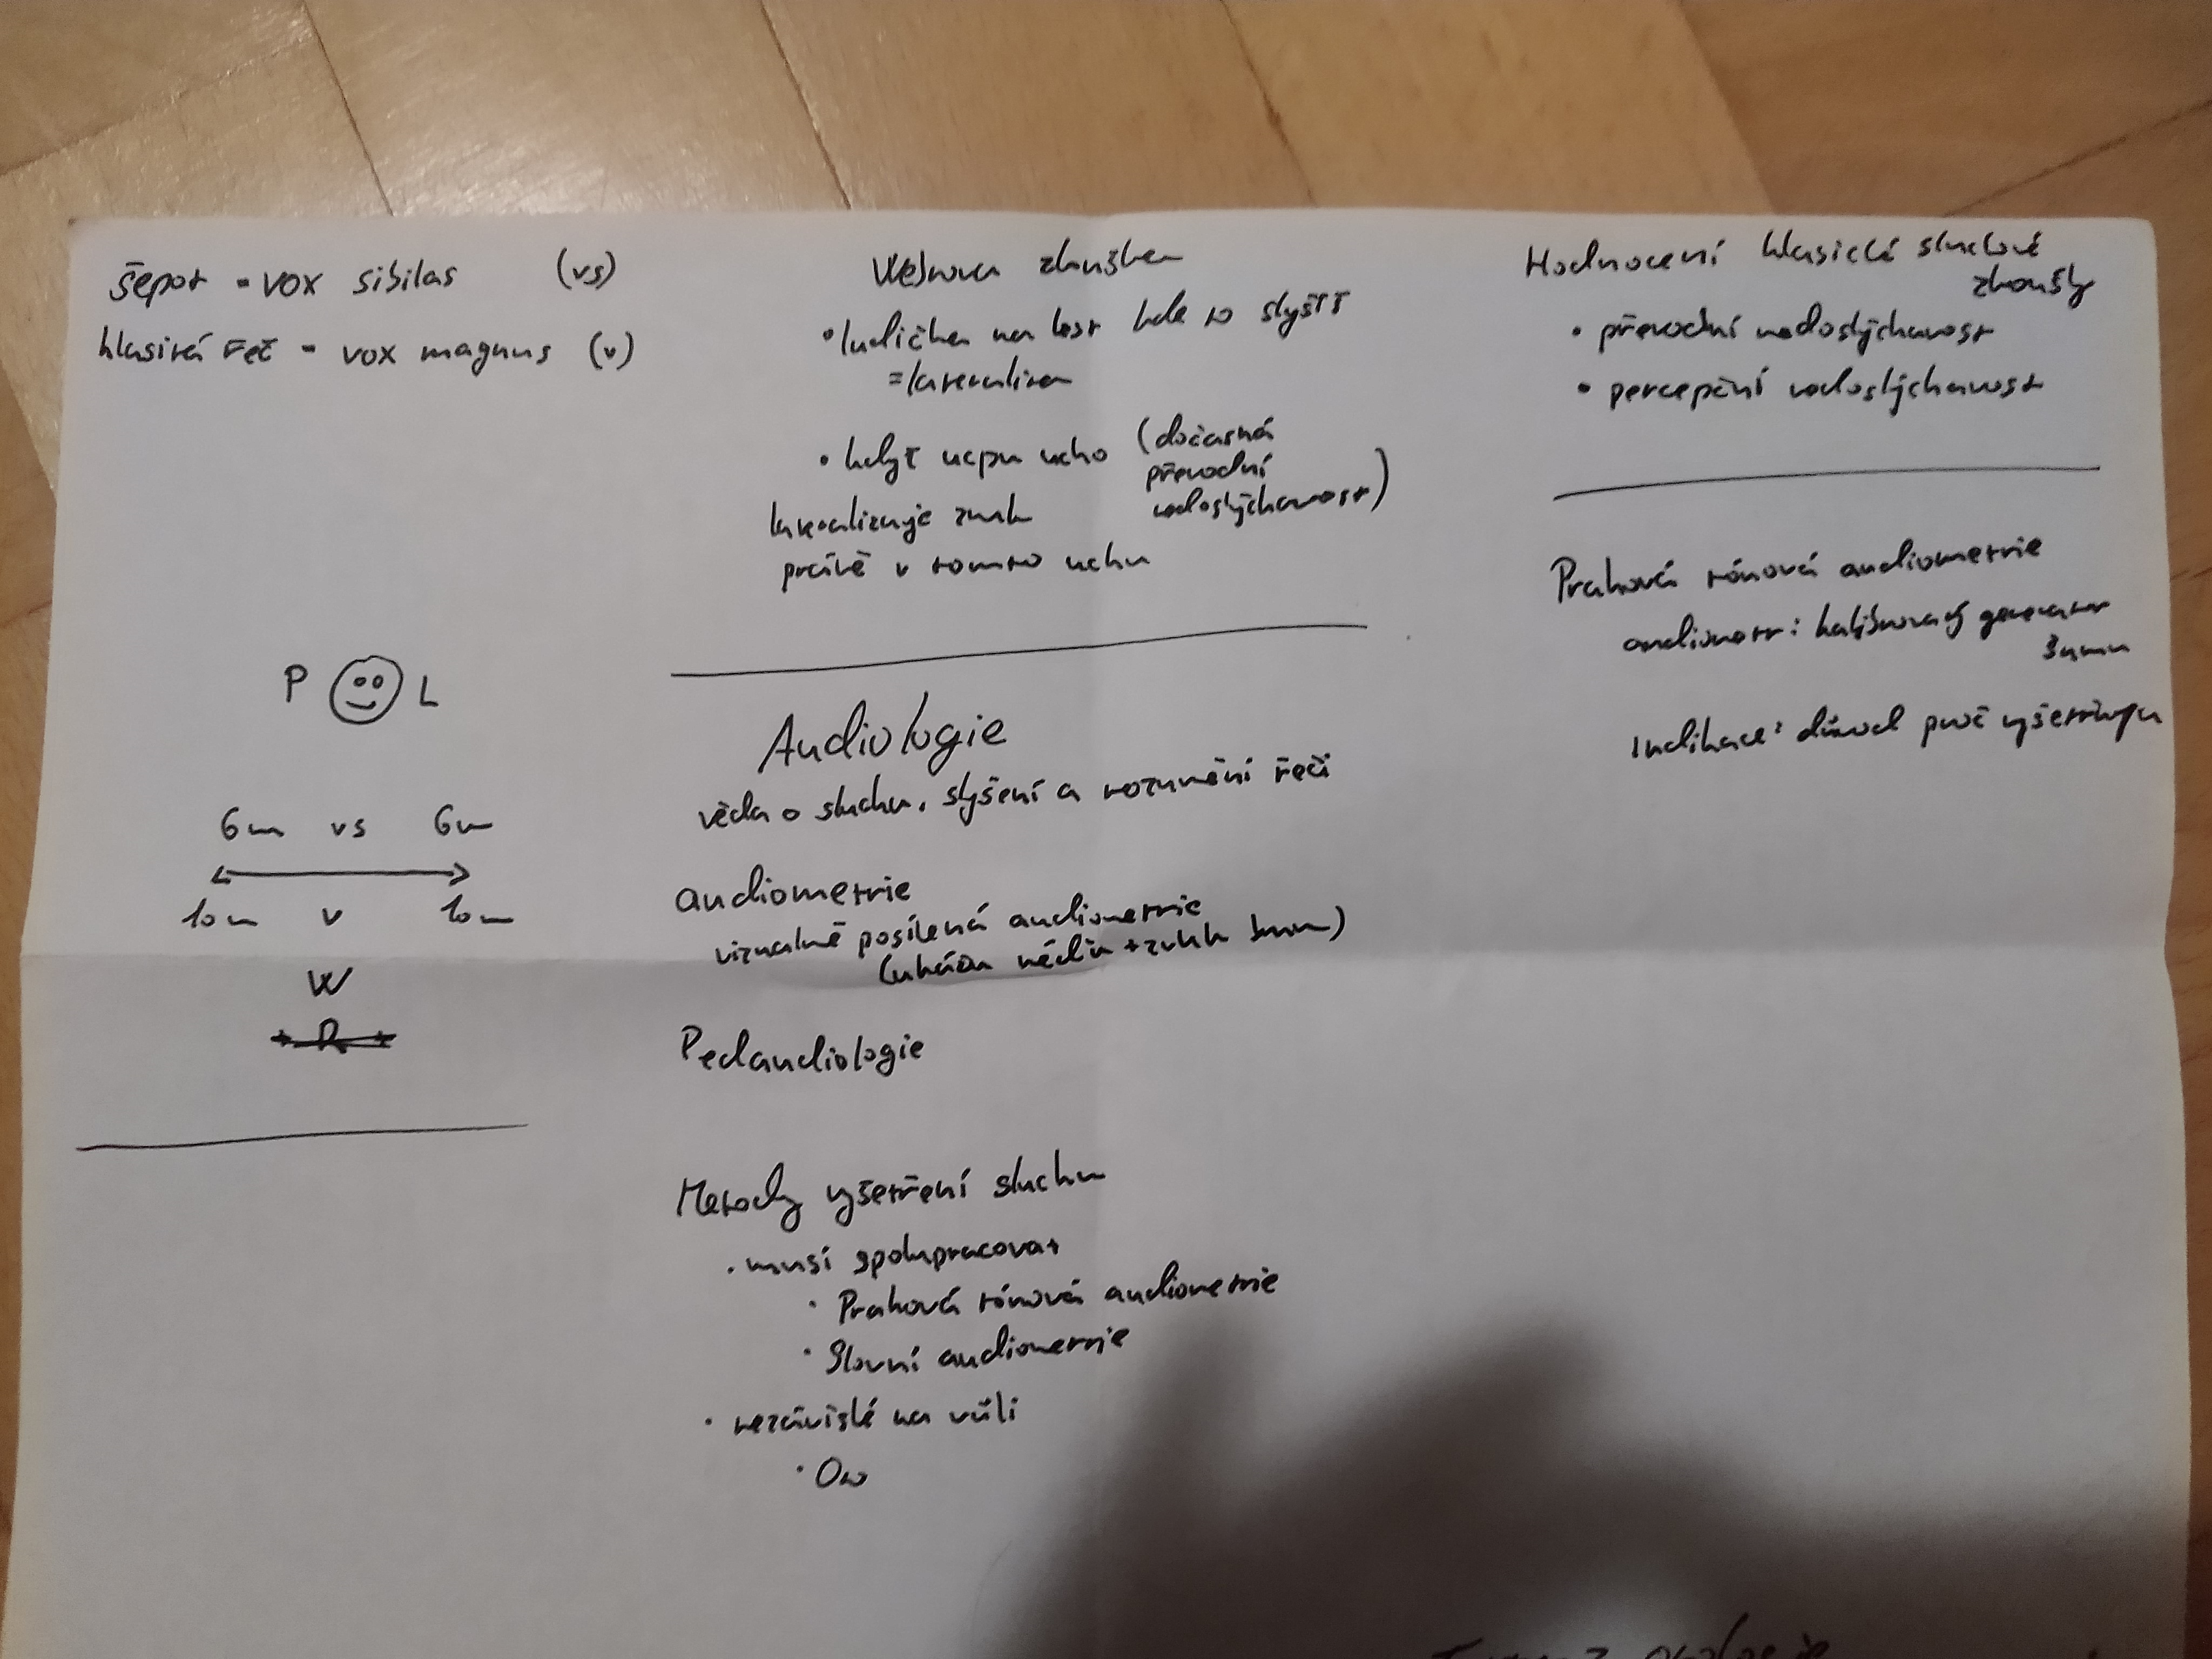 šepot = vox sibilas (vs)
hlasitá řeč = vox magnus (v)
P L
6m vs 6m
10m v 10m
W
+ R +
Webrova zkouška
• ladička na kost kde to slyšíš
= lateralizace
• když ucpu ucho (dočasná
převodní
nedoslýchavost)
lateralizuje zvuk
právě v tomto uchu
Audiologie
věda o sluchu, slyšení a rozumění řeči
audiometrie
vizualně posílená audiometrie
(ukážu + zvuk
Pedaudiologie
Metody vyšetření sluchu
• musí spolupracovat
• Prahová tónová audiometrie
• Slovní audiometrie
• nezávislé na vůli
Hodnocení klasické sluchové
zkoušky
• převodní nedoslýchavost
• percepční nedoslýchavost
Prahová tónová audiometrie
audiometr: kalibrovaný generator
šumu
Indikace: důvod proč vyšetřuju
otologie